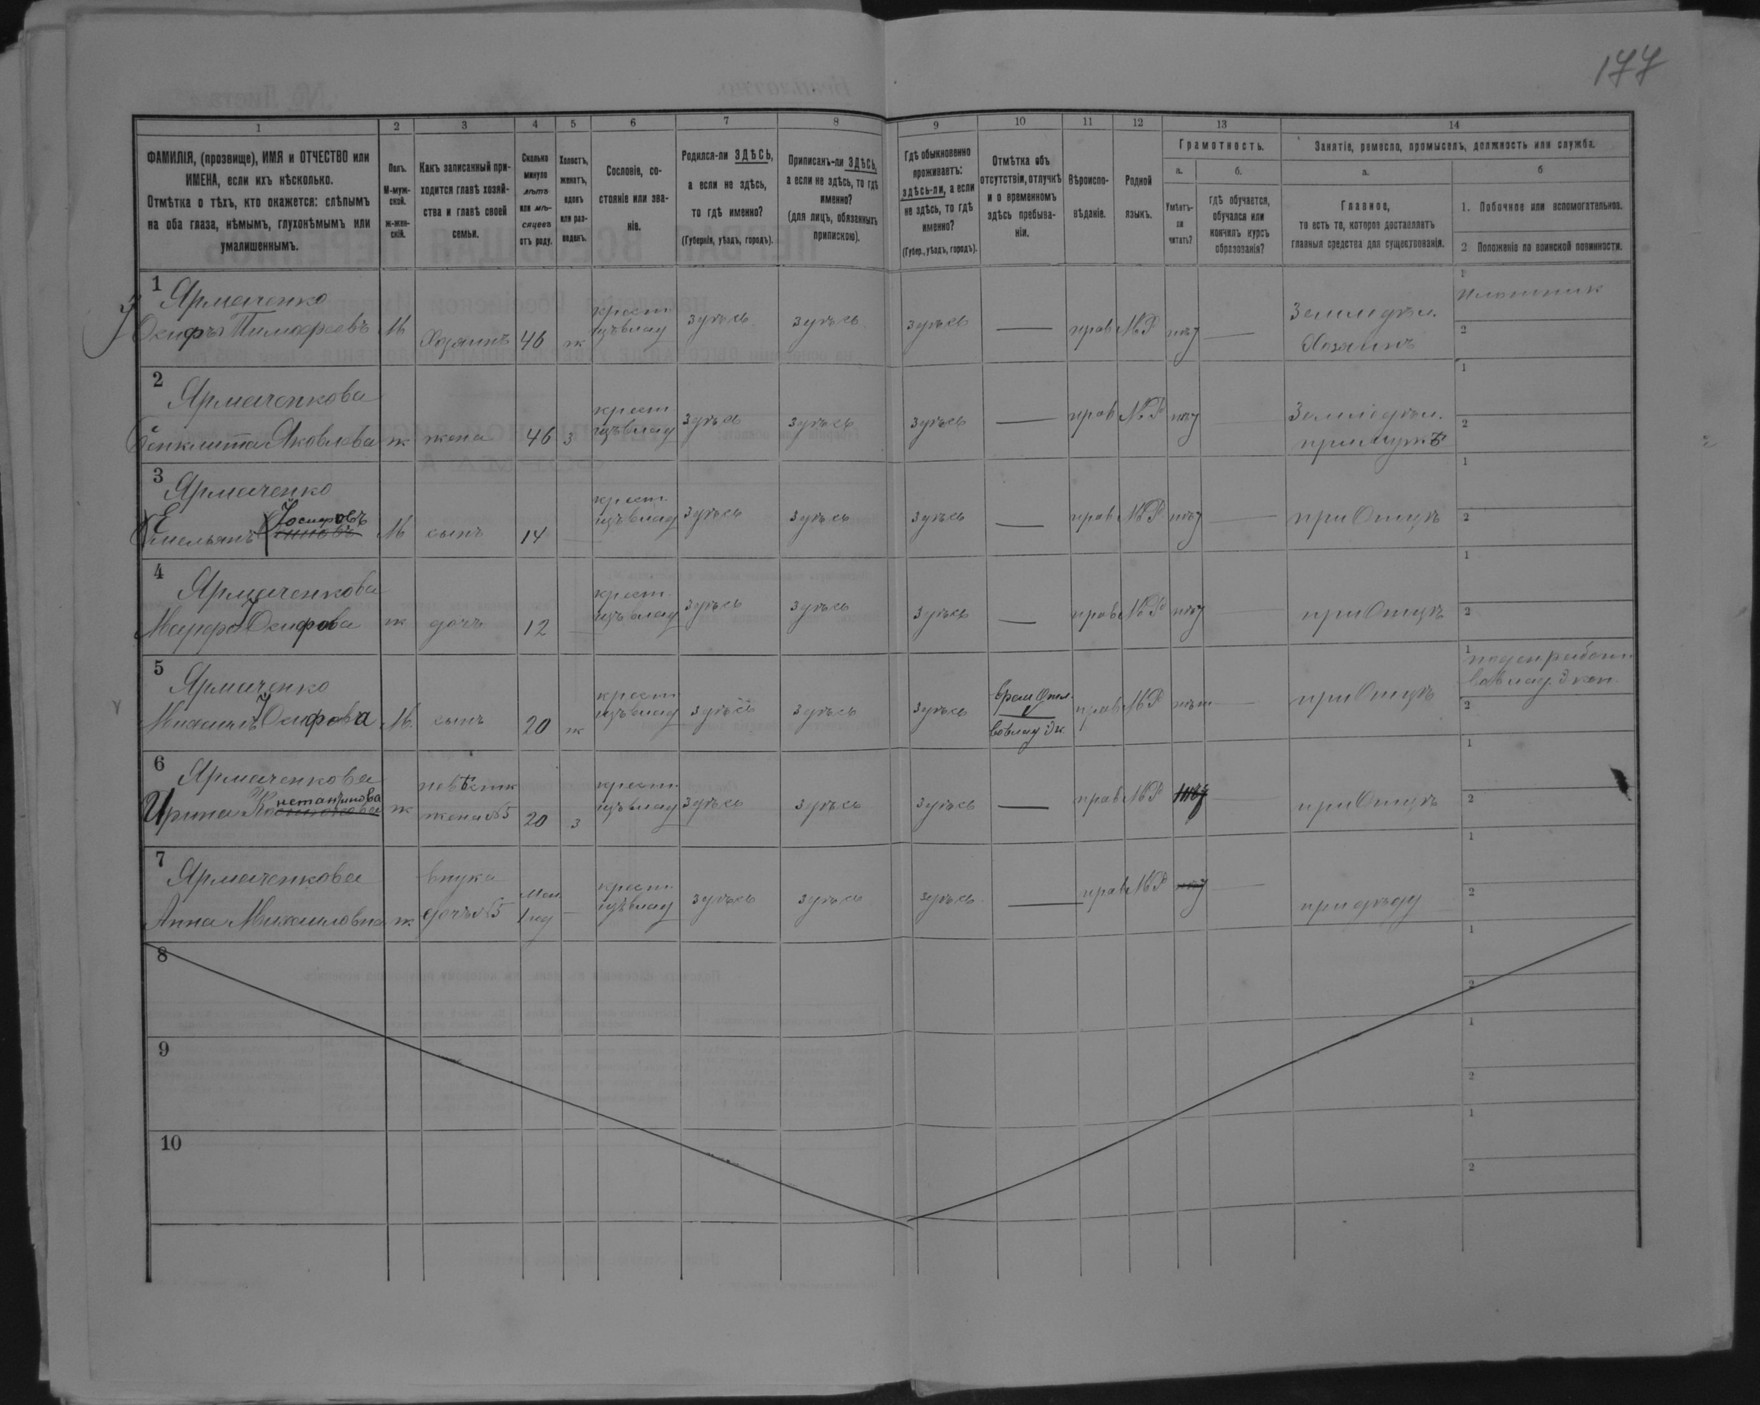 177
1 2 3 4 5 6 7 8 9 10 11 12 13 14
ФАМИЛІЯ, (прозвище), ИМЯ и ОТЧЕСТВО или ИМЕНА, если ихъ нѣсколько.
Отмѣтка о тѣхъ, кто окажется: слѣпымъ на оба глаза, нѣмымъ, глухонѣмымъ или умалишеннымъ.
Полъ.
М-муж-
ской.
ж-жен-
скій.
Какъ записанный при-
ходится главѣ хозяй-
ства и главѣ своей
семьи.
Сколько
минуло
лѣтъ
или мѣ-
сяцевъ
отъ роду.
Холостъ,
женатъ,
вдовъ
или раз-
веденъ.
Сословіе, со-
стояніе или зва-
ніе.
Родился-ли ЗДѢСЬ,
а если не здѣсь,
то гдѣ именно?
(Губернія, уѣздъ, городъ).
Приписанъ-ли ЗДѢСЬ,
а если не здѣсь, то гдѣ
именно?
(для лицъ, обязанныхъ
припискою).
Гдѣ обыкновенно
проживаетъ:
здѣсь-ли, а если
не здѣсь, то гдѣ
именно?
(Губер., уѣздъ, городъ).
Отмѣтка объ
отсутствіи, отлучкѣ
и о временномъ
здѣсь пребыва-
ніи.
Вѣроиспо-
вѣданіе.
Родной
языкъ.
Грамотность.
а.
Умѣетъ-
ли
читать?
б.
Гдѣ обучается,
обучался или
кончилъ курсъ
образованія?
Занятіе, ремесло, промыселъ, должность или служба.
а.
Главное,
то есть то, которое доставляетъ
главныя средства для существованія.
б
1. Побочное или вспомогательное.
2 Положеніе по воинской повинности.
1 Ярмаченко
Осифъ Тимофеевъ М Хозяинъ 46 ж крест здѣсь здѣсь здѣсь — прав М.Р — Земледѣл. Хозяинъ
1 Плотник
2
2 Ярмаченкова
Яковлева ж жена 46 з крест здѣсь здѣсь здѣсь — прав М.Р — Земледѣл. при мужѣ
1
2
3 Ярмаченко
Емельянъ Іосифовъ М сынъ 14 крест здѣсь здѣсь здѣсь — прав М.Р — при Отцѣ
1
2
4 Ярмаченкова
Осифова ж дочь 12 крест здѣсь здѣсь здѣсь — прав М.Р — при Отцѣ
1
2
5 Ярмаченко
Михаилъ Осифова М сынъ 20 ж крест здѣсь здѣсь здѣсь прав М.Р нѣт — при Отцѣ
1
2
6 Ярмаченкова
Ирина Константинова ж невѣстк жена №5 20 з крест здѣсь здѣсь здѣсь — прав М.Р — при Отцѣ
1
2
7 Ярмаченкова
Анна Михаиловна ж внука дочь №5 1 год — крест здѣсь здѣсь здѣсь — прав М.Р — при дѣду
1
2
8
1
2
9
1
2
10
1
2